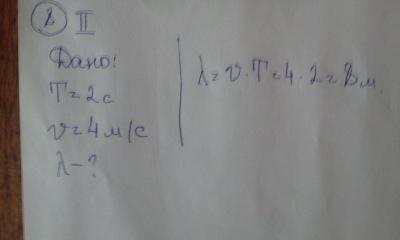 8 II
Дано:
T=2с
v=4м/с
λ-?
λ=v·T=4·2=8м.